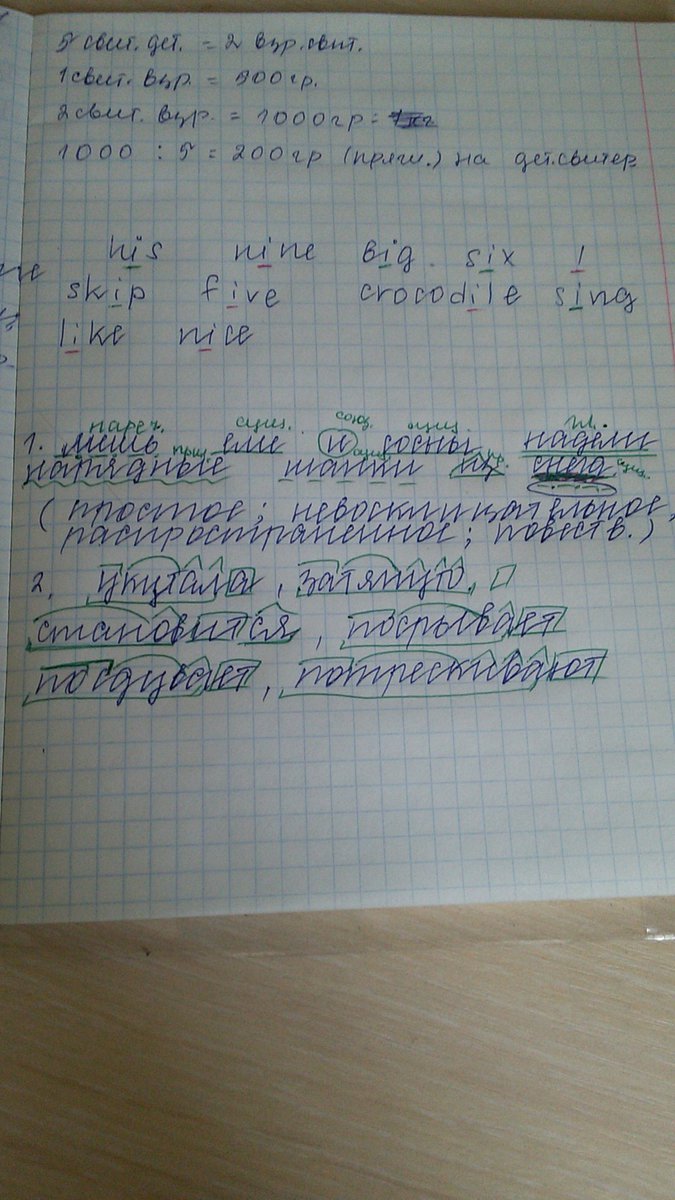 5 свит. дет. = 2 взр. свит.
1 свит. взр. = 500 гр.
2 свит. взр. = 1000 гр =
1000 : 5 = 200 гр (пряж.) на дет. свитер
his nine big. six I
skip five crocodile sing
like nice
нареч. сущ. союз. сущ. гл.
1. лишь ели и сосны надели
прил. сущ. пр. сущ.
нарядные шапки из снега
(простое; невосклицательное,
распространённое; повеств.)
2. укутала, затянуто,
становится, посрывает
посдувает, потрескивают